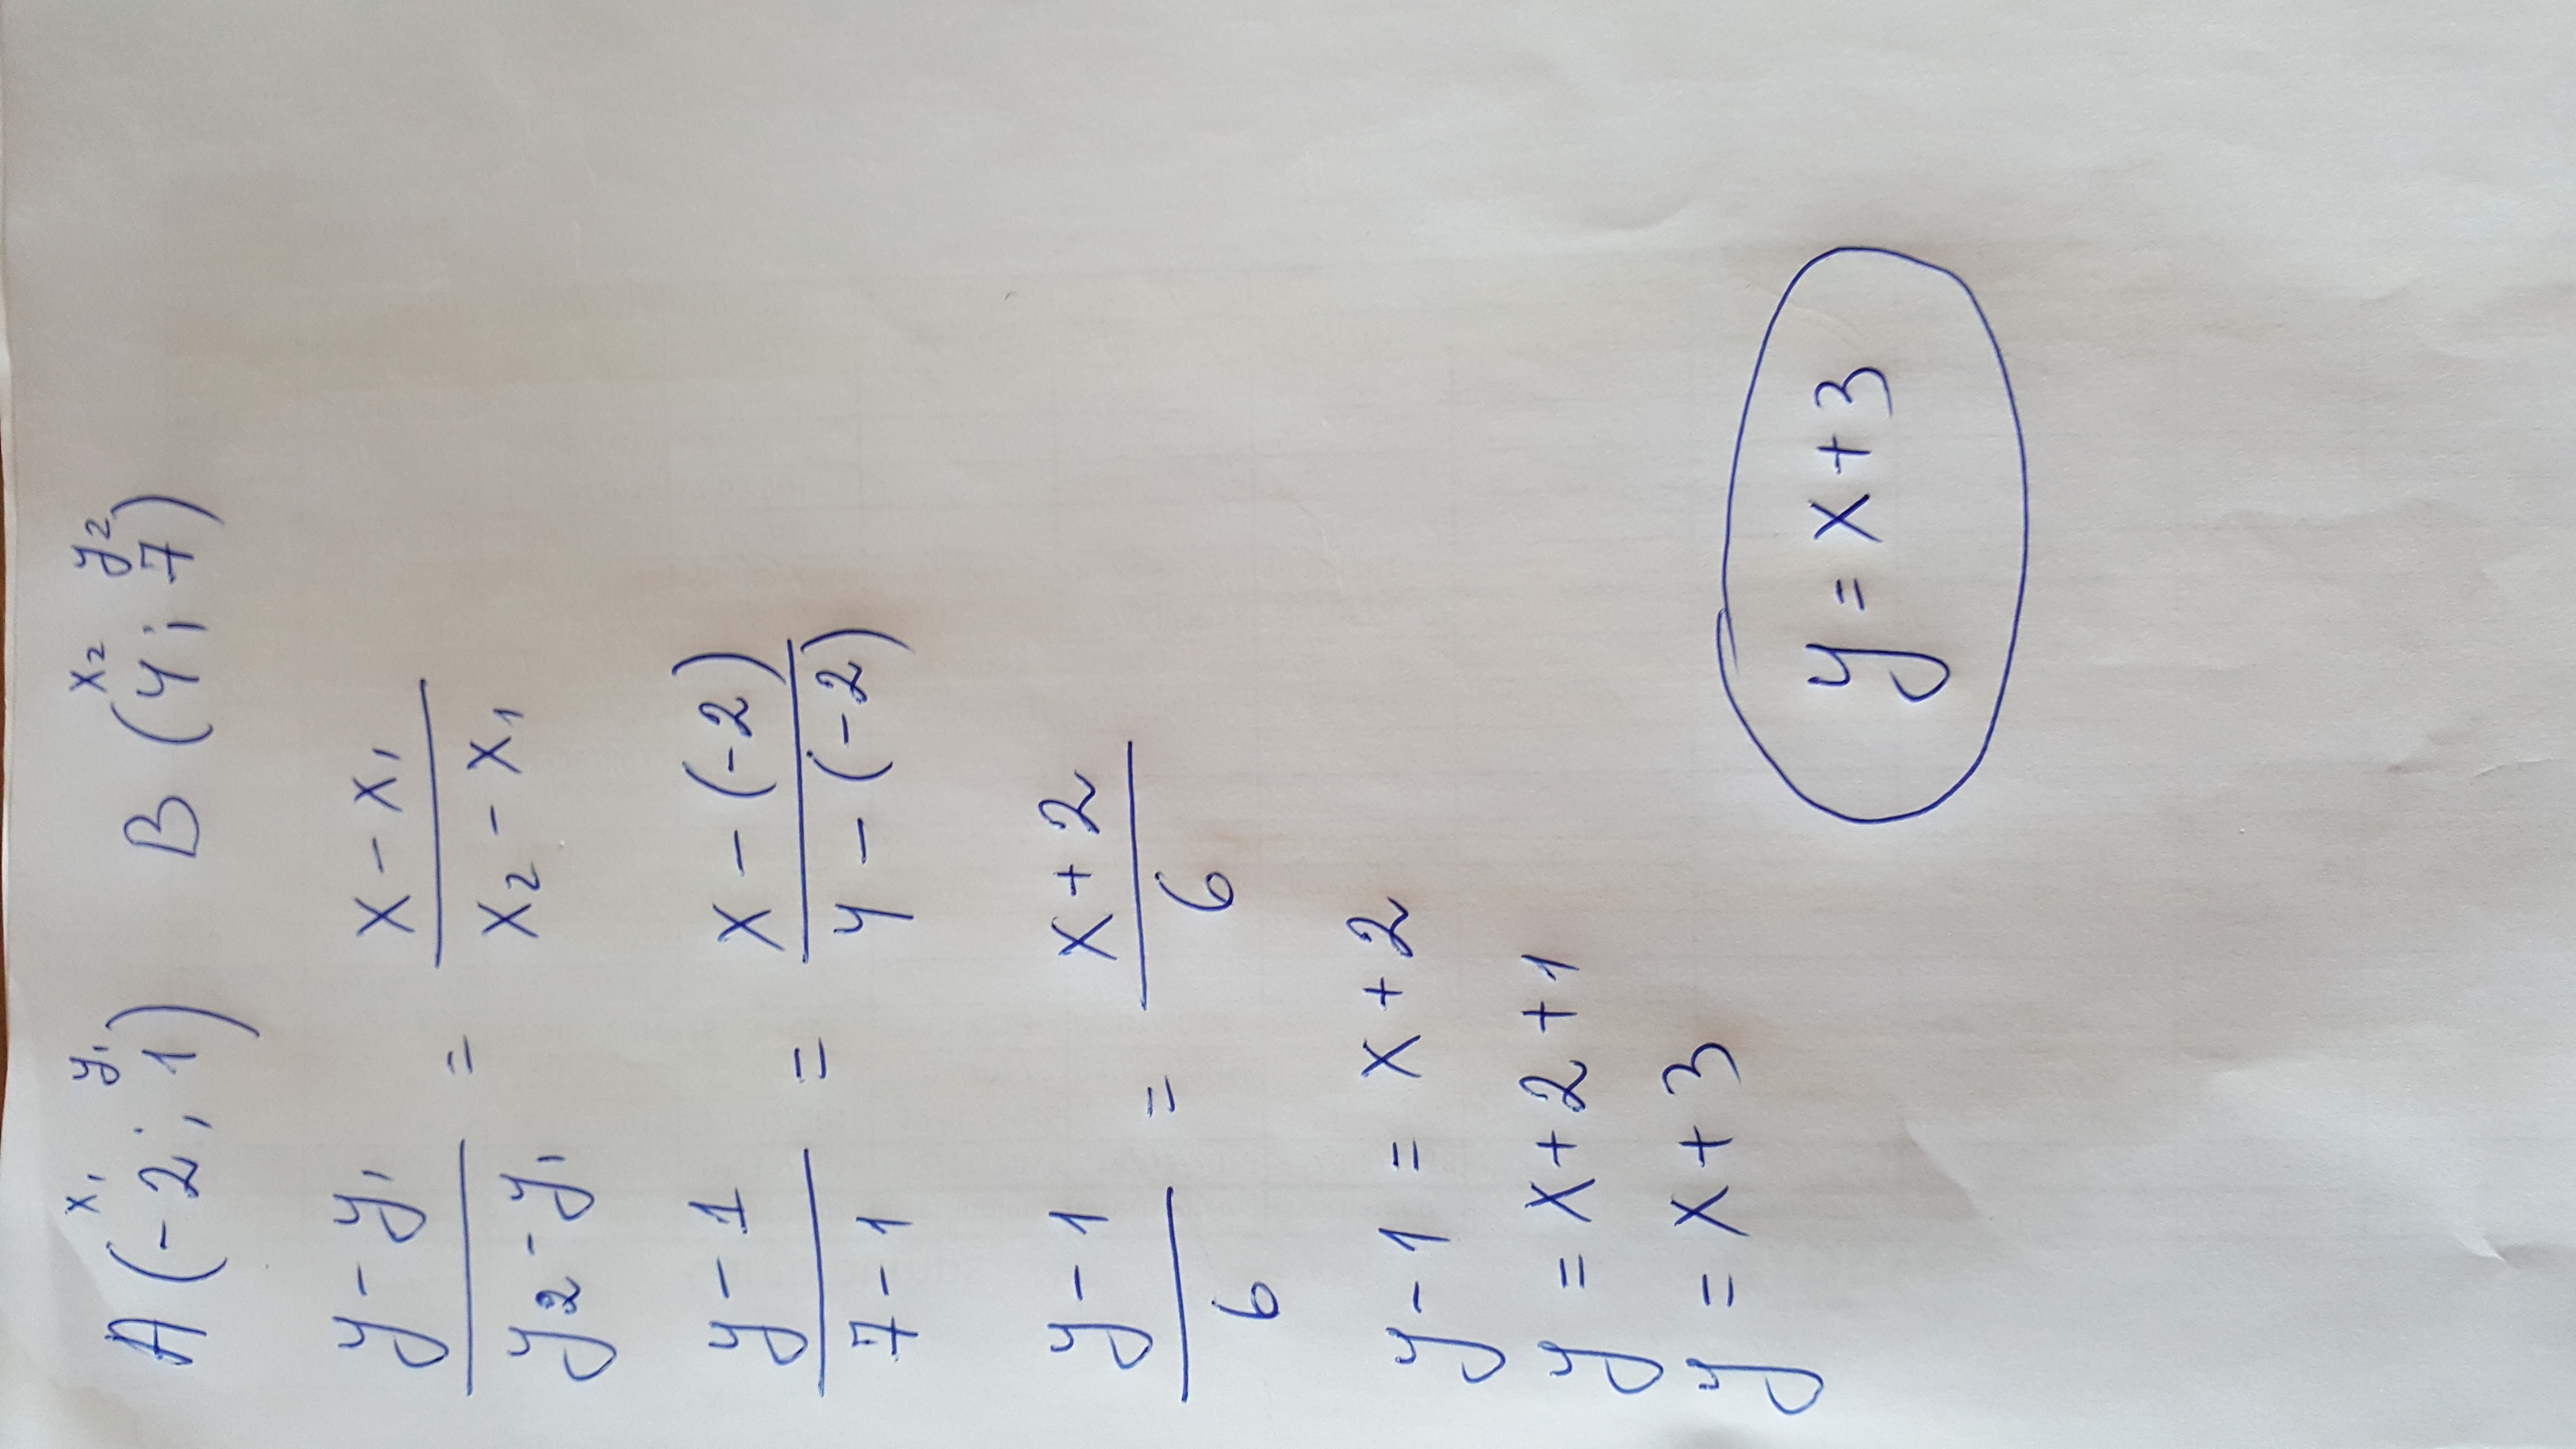 x₁ y₁ x₂ y₂
A (-2; 1) B (4; 7)
y - y₁ / y₂ - y₁ = x - x₁ / x₂ - x₁
y - 1 / 7 - 1 = x - (-2) / 4 - (-2)
y - 1 / 6 = x + 2 / 6
y - 1 = x + 2
y = x + 2 + 1
y = x + 3
y = x + 3